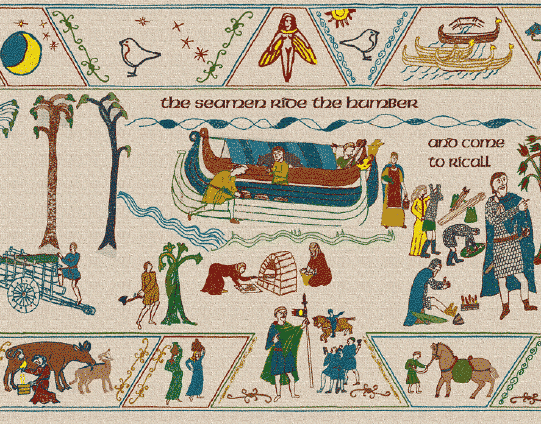 the seamen ride the humber
and come
to ricall